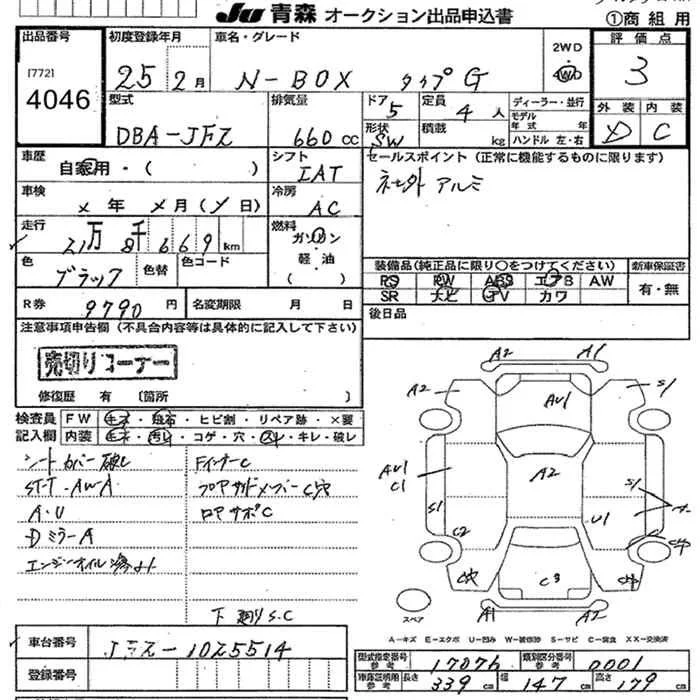 JU 青森 オークション出品申込書
①商組用
出品番号
[772]
4046
初度登録年月
25年 2月
車名・グレード
N-BOX タイプG
2WD
4WD
評価点
3
外装 内装
D C
型式
DBA-JF2
排気量
660cc
ドア 5
形状 SW
定員 4人
積載 kg
ディーラー・並行
モデル年式 年
ハンドル 左・右
車歴
自家用・( )
シフト
IAT
セールスポイント(正常に機能するものに限ります)
社外 アルミ
車検
×年 ×月(×日)
冷房
AC
走行
21万8千669km
燃料
ガソリン
軽・油
( )
色
ブラック
色替
色コード
装備品(純正品に限り○をつけてください)
新車保証書
PS PW ABS エアB AW
SR ナビ TV カワ
有・無
R券 9790円
名変期限 月 日
後日品
注意事項申告欄(不具合内容等は具体的に記入して下さい)
売切りコーナー
修復歴 有 〔箇所 〕
検査員 FW キズ・飛石・ヒビ割・リペア跡・×要
記入欄 内装 キズ・汚レ・コゲ・穴・スレ・キレ・破レ
シートカバー破レ
ST-T・AWA
A・U
DミラーA
エンジンオイル滲ｵｵ
FインナーC
フロアサイドメンバーC穴
ロアサポC
下廻りS.C
A2 A1
A2 AU1 S1
AU1
C1
A2
S1
S1
C2
U1
C穴
C3
A1 A2
スペア
A-キズ E-エクボ U-凹み W-補修跡 S-サビ C-腐食 XX-交換済
車台番号
JF2-1025514
登録番号
型式指定番号
参考
17076
類別区分番号
参考
0001
車庫証明用
参考
長さ 339cm
幅 147cm
高さ 179cm